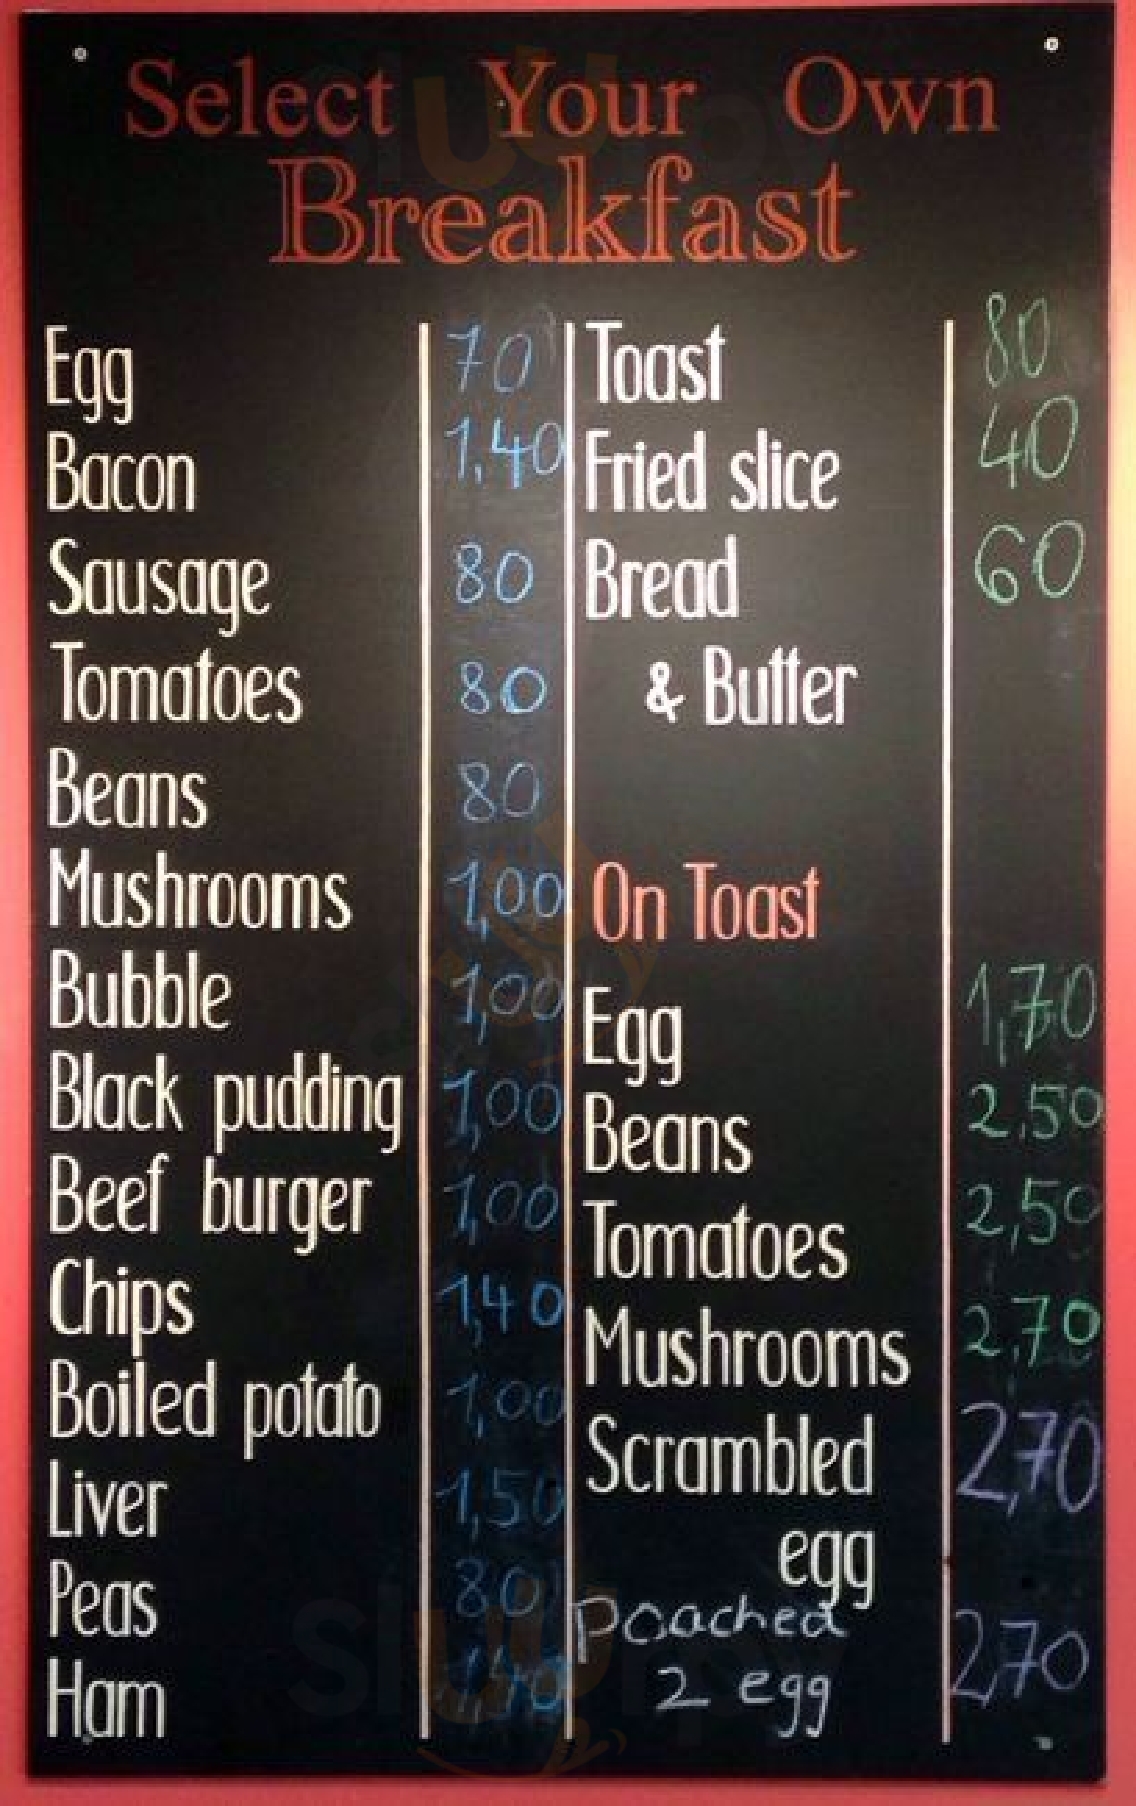 Select Your Own
Breakfast
Egg 70
Bacon 1,40
Sausage 80
Tomatoes 80
Beans 80
Mushrooms 1,00
Bubble 1,00
Black pudding 1,00
Beef burger 1,00
Chips 1,40
Boiled potato 1,00
Liver 1,50
Peas 80
Ham 1,40
Toast 80
Fried slice 40
Bread 60
& Butter
On Toast
Egg 1,70
Beans 2,50
Tomatoes 2,50
Mushrooms 2,70
Scrambled 2,70
egg
Poached
2 egg 2,70